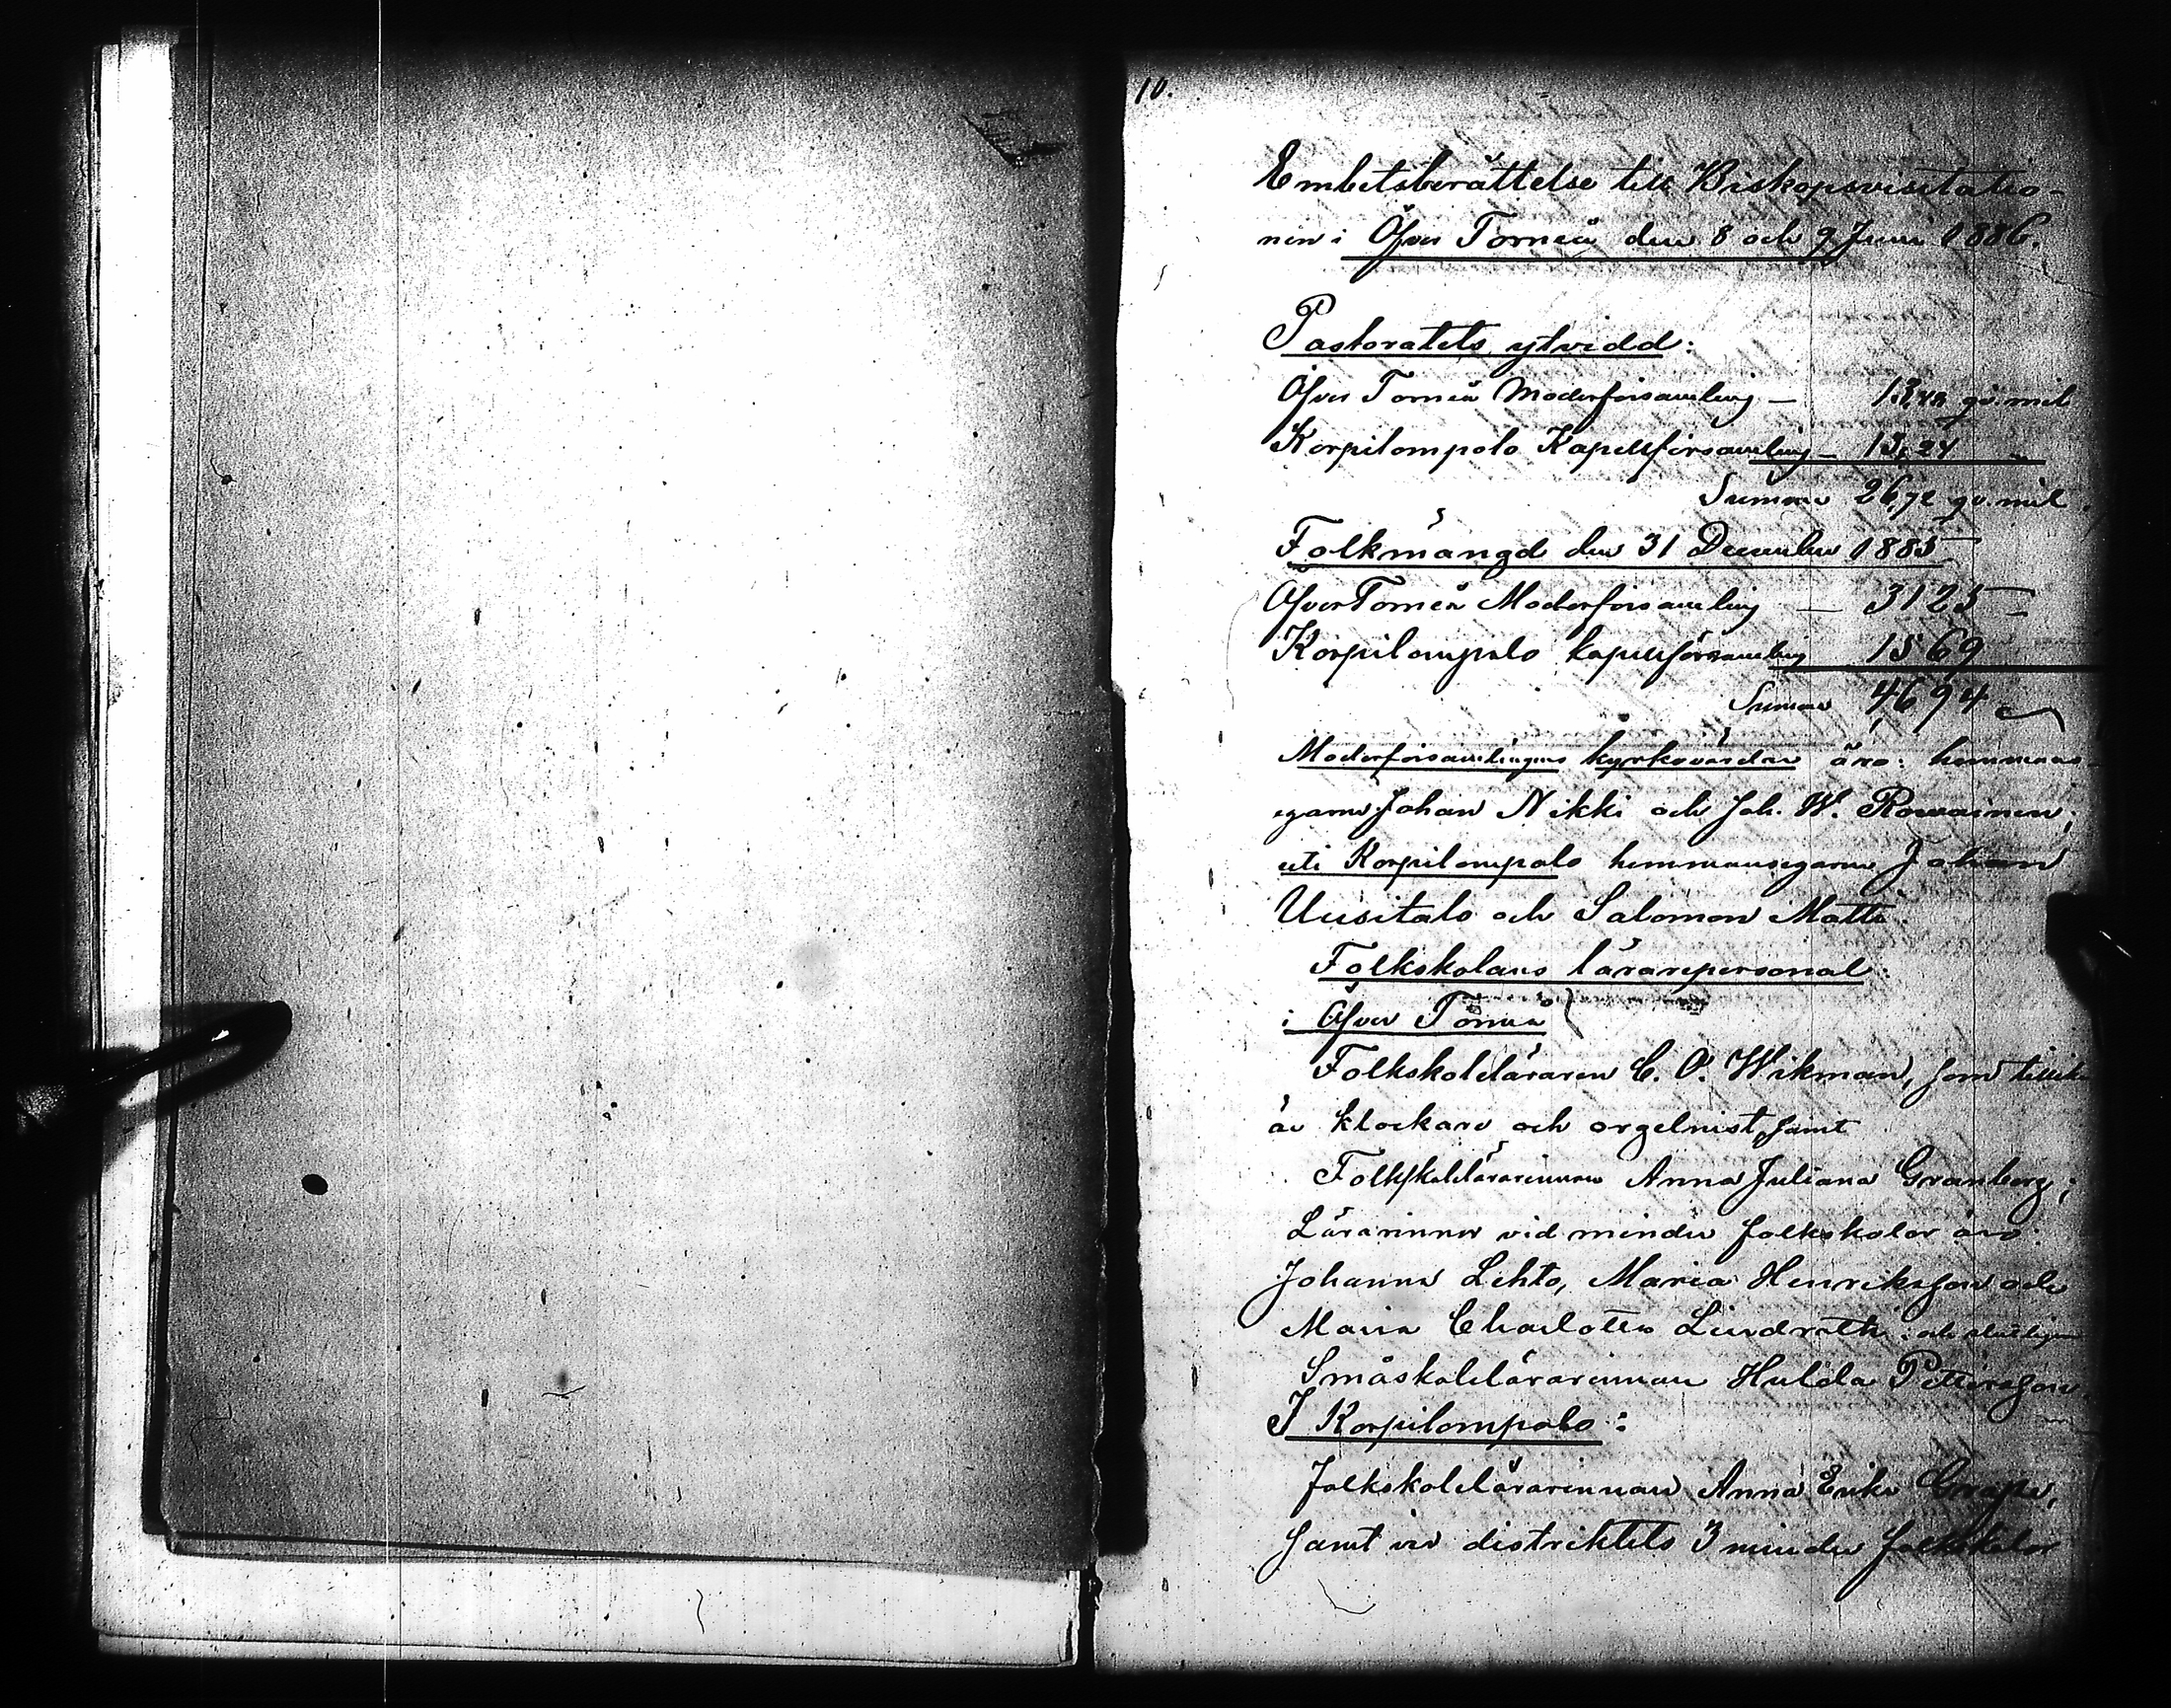 10.
Embetsberättelse till Biskopsvisitatio-
nen i Öfver Torneå den 8 och 9 Juni 1886.
Pastoratets ytvidd:
Öfver Torneå Moderförsamling — 13,48 qv. mil
Korpilompolo Kapellförsamling — 13,24 "
Summa 26,72 qv. mil.
Folkmängd den 31 December 1885
Öfver Torneå Moderförsamling — 3125
Korpilompolo kapellförsamling 1569
Summa 4694
Moderförsamlingens kyrkovärdar äro: hemmans-
egarne Johan Nikki och Joh. W. Rowainen;
uti Korpilompolo hemmansegarne Johan
Uusitalo och Salomon Matti.
Folkskolans lärarepersonal:
i Öfver Torneå
Folkskoleläraren C. O. Wikman, som tillika
är klockare och orgelnist, samt
Folkskolelärarinnan Anna Juliana Granberg;
Lärarinnor vid mindre folkskolor äro:
Johanna Lehto, Maria Henriksson och
Maria Charlotta Lindroth; och slutligen
Småskolelärarinnan Hulda Pettersson.
I Korpilompolo:
Folkskolelärarinnan Anna Erika Grape,
samt vid distriktets 3 mindre folkskolor